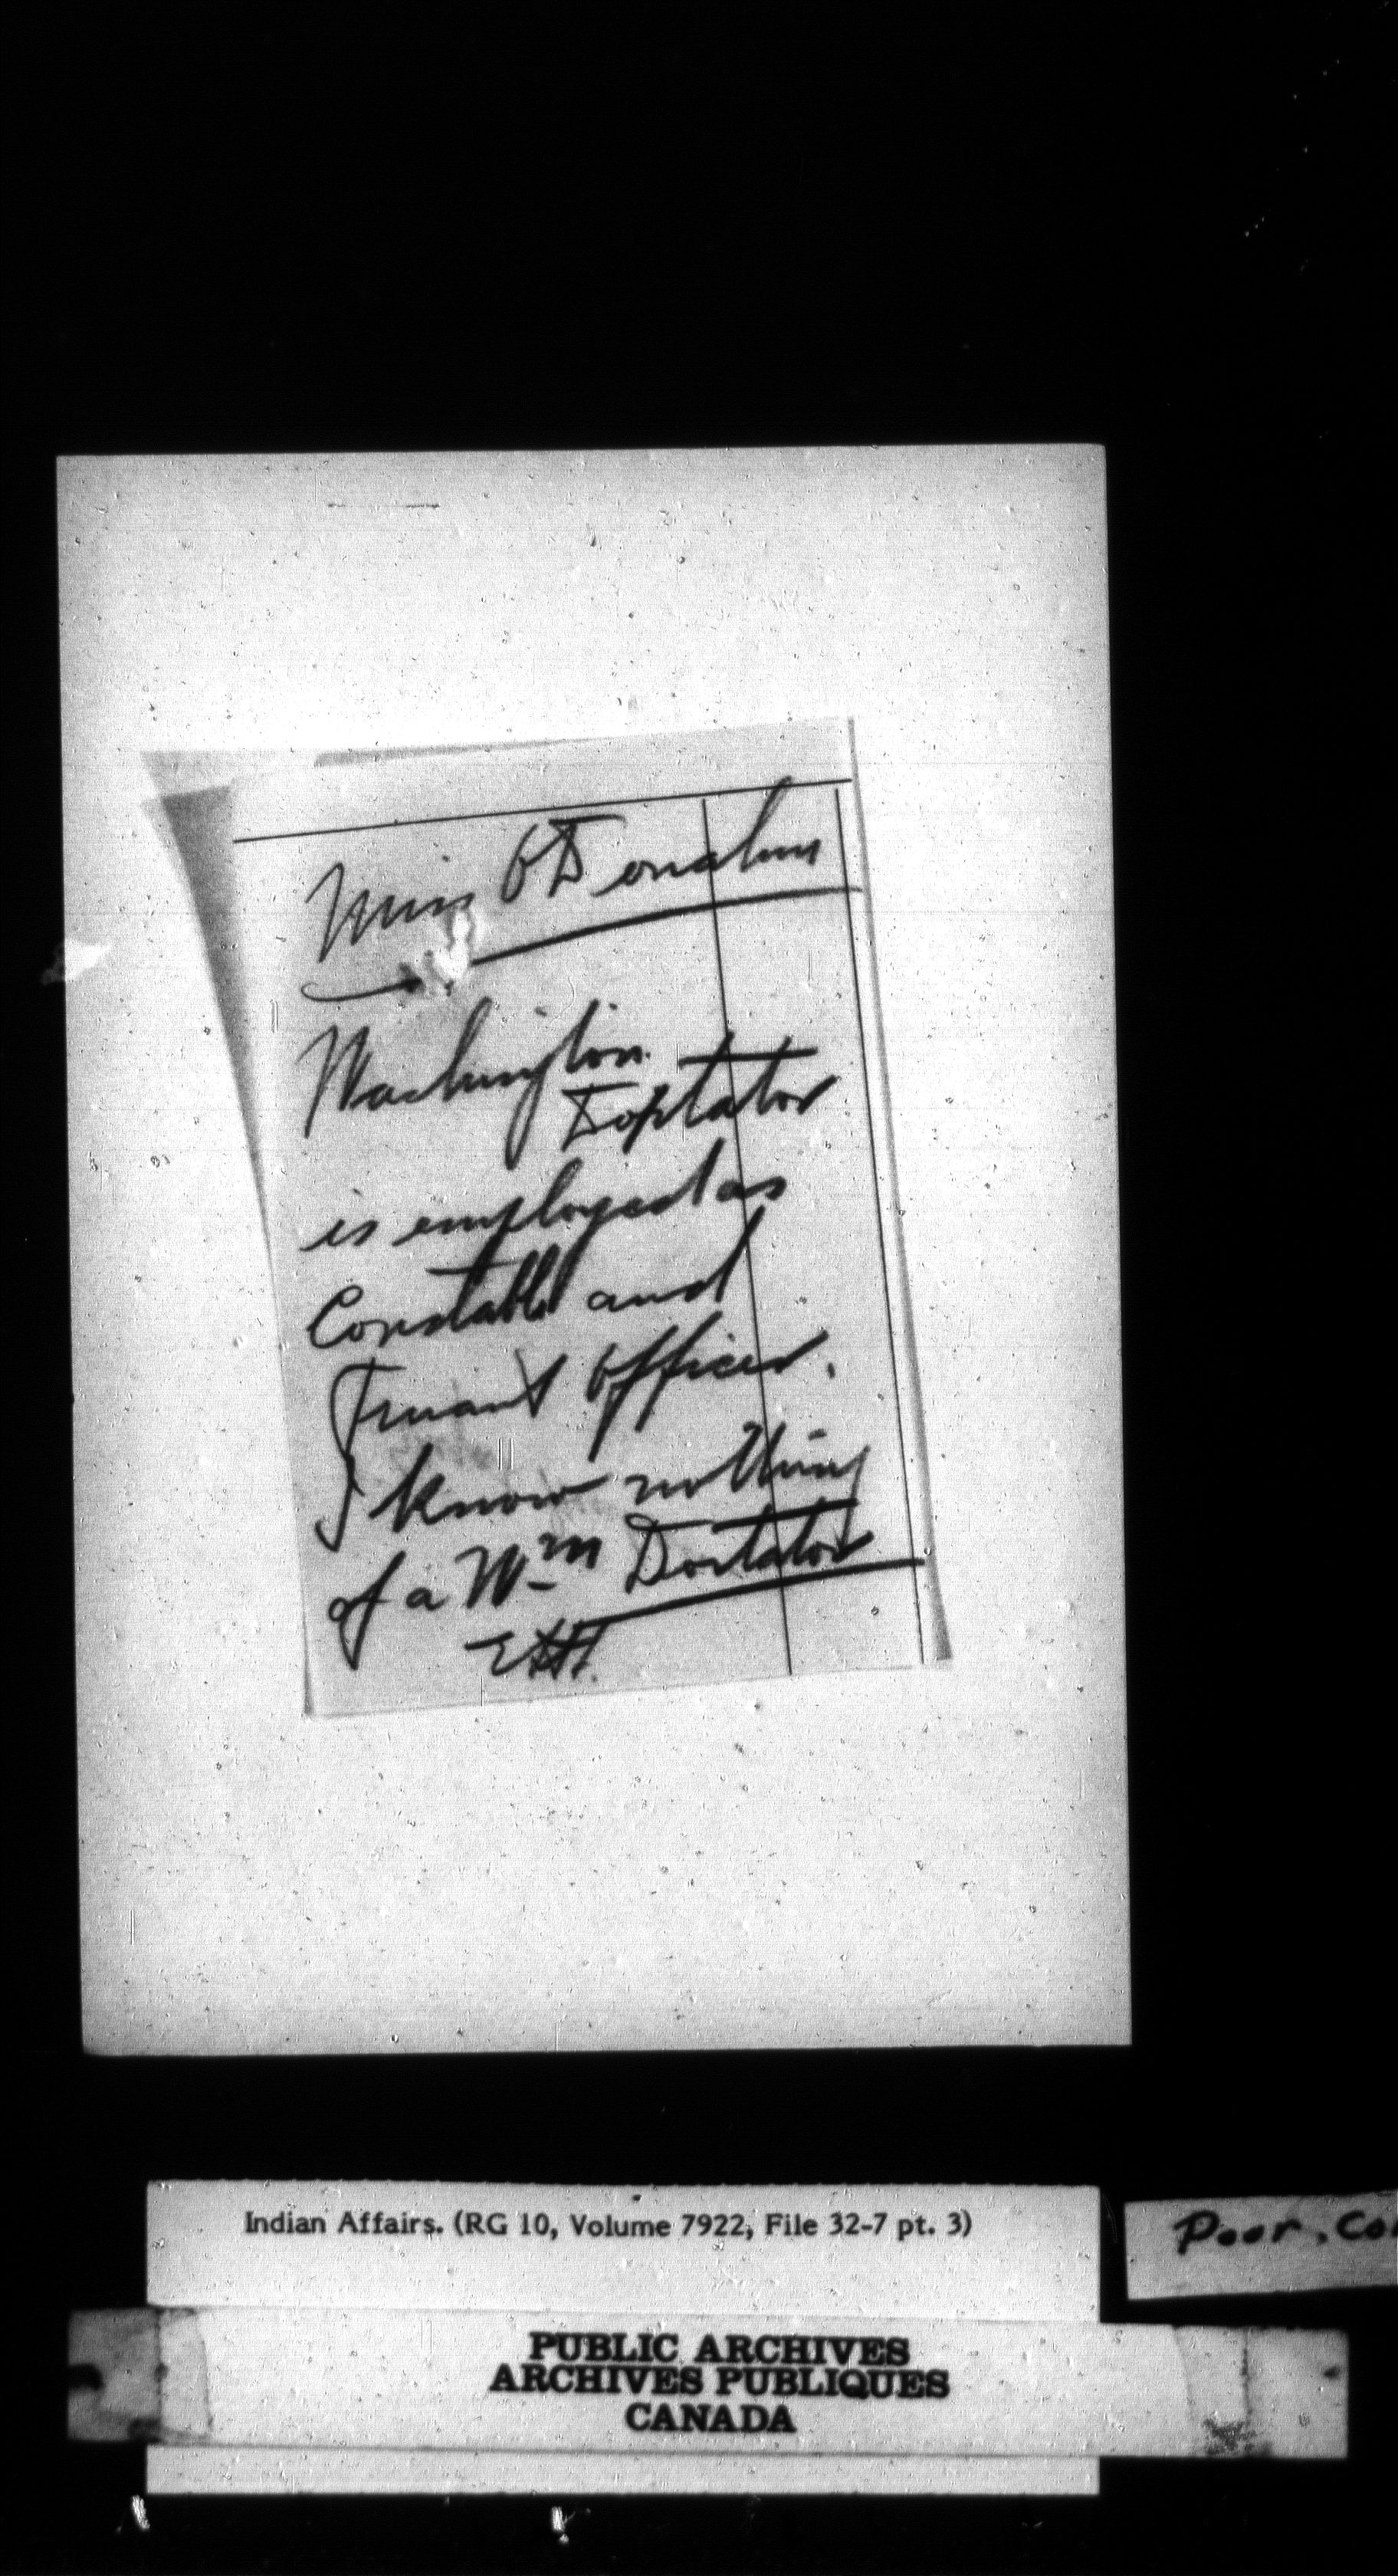 Miss O'Donahue
Washington
Doxtator
is employed as
Constable and
Truant Officer.
I know nothing
of a Wm Doxtator
Indian Affairs. (RG 10, Volume 7922, File 32-7 pt. 3)
Poor, Co
PUBLIC ARCHIVES
ARCHIVES PUBLIQUES
CANADA